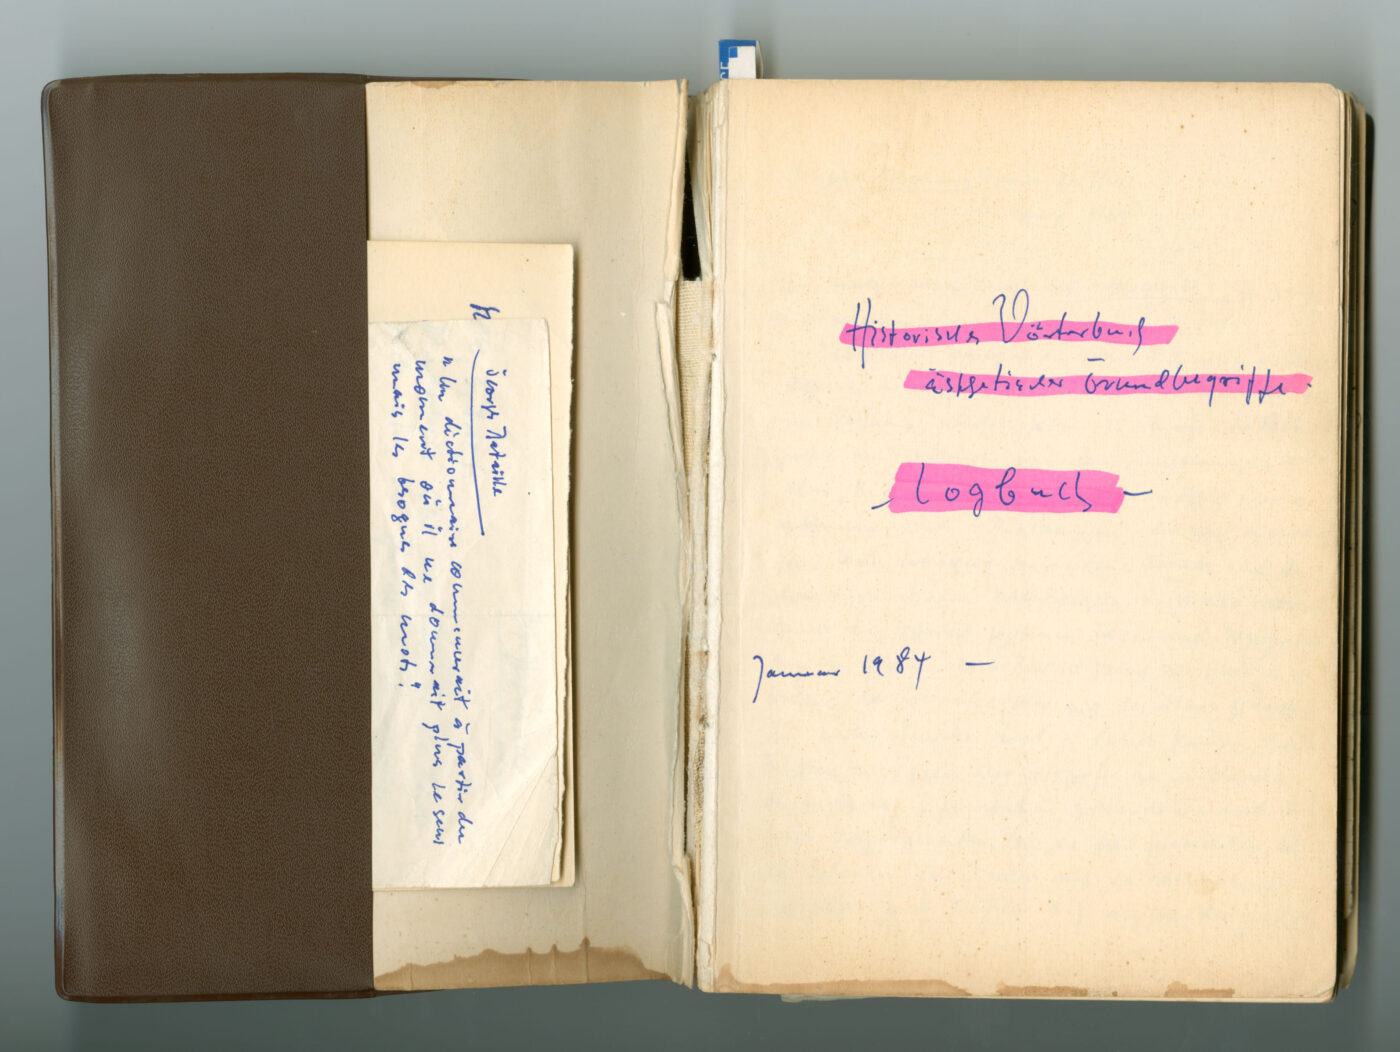 Bataille
"Un dictionnaire commencerait à partir du
moment où il ne donnerait plus le sens
mais les besognes des mots"
Historisches Wörterbuch
ästhetischer Grundbegriffe.
- Logbuch -
Januar 1984 —